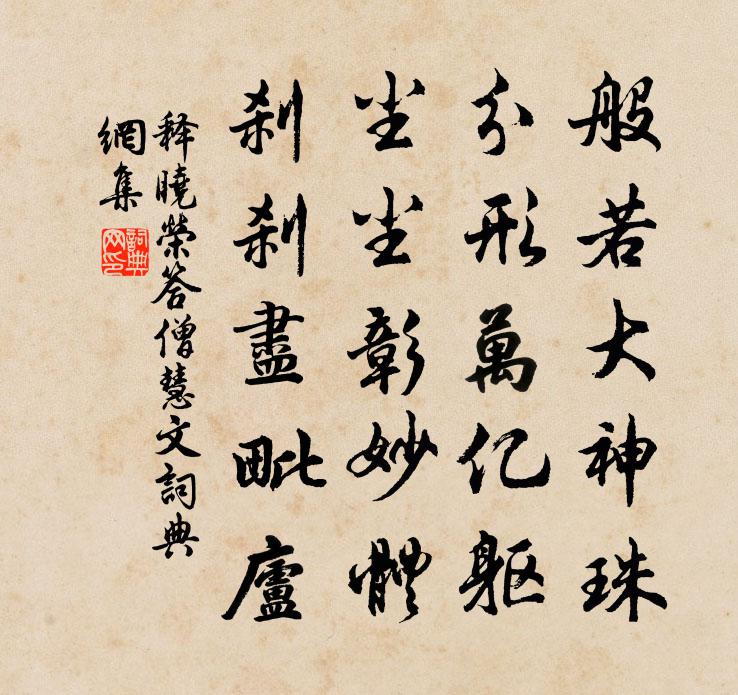 般若大神珠
分形萬亿躯
尘尘彰妙體
刹刹盡毗廬
释曉榮答僧慧文詞典
網集
詞典網印